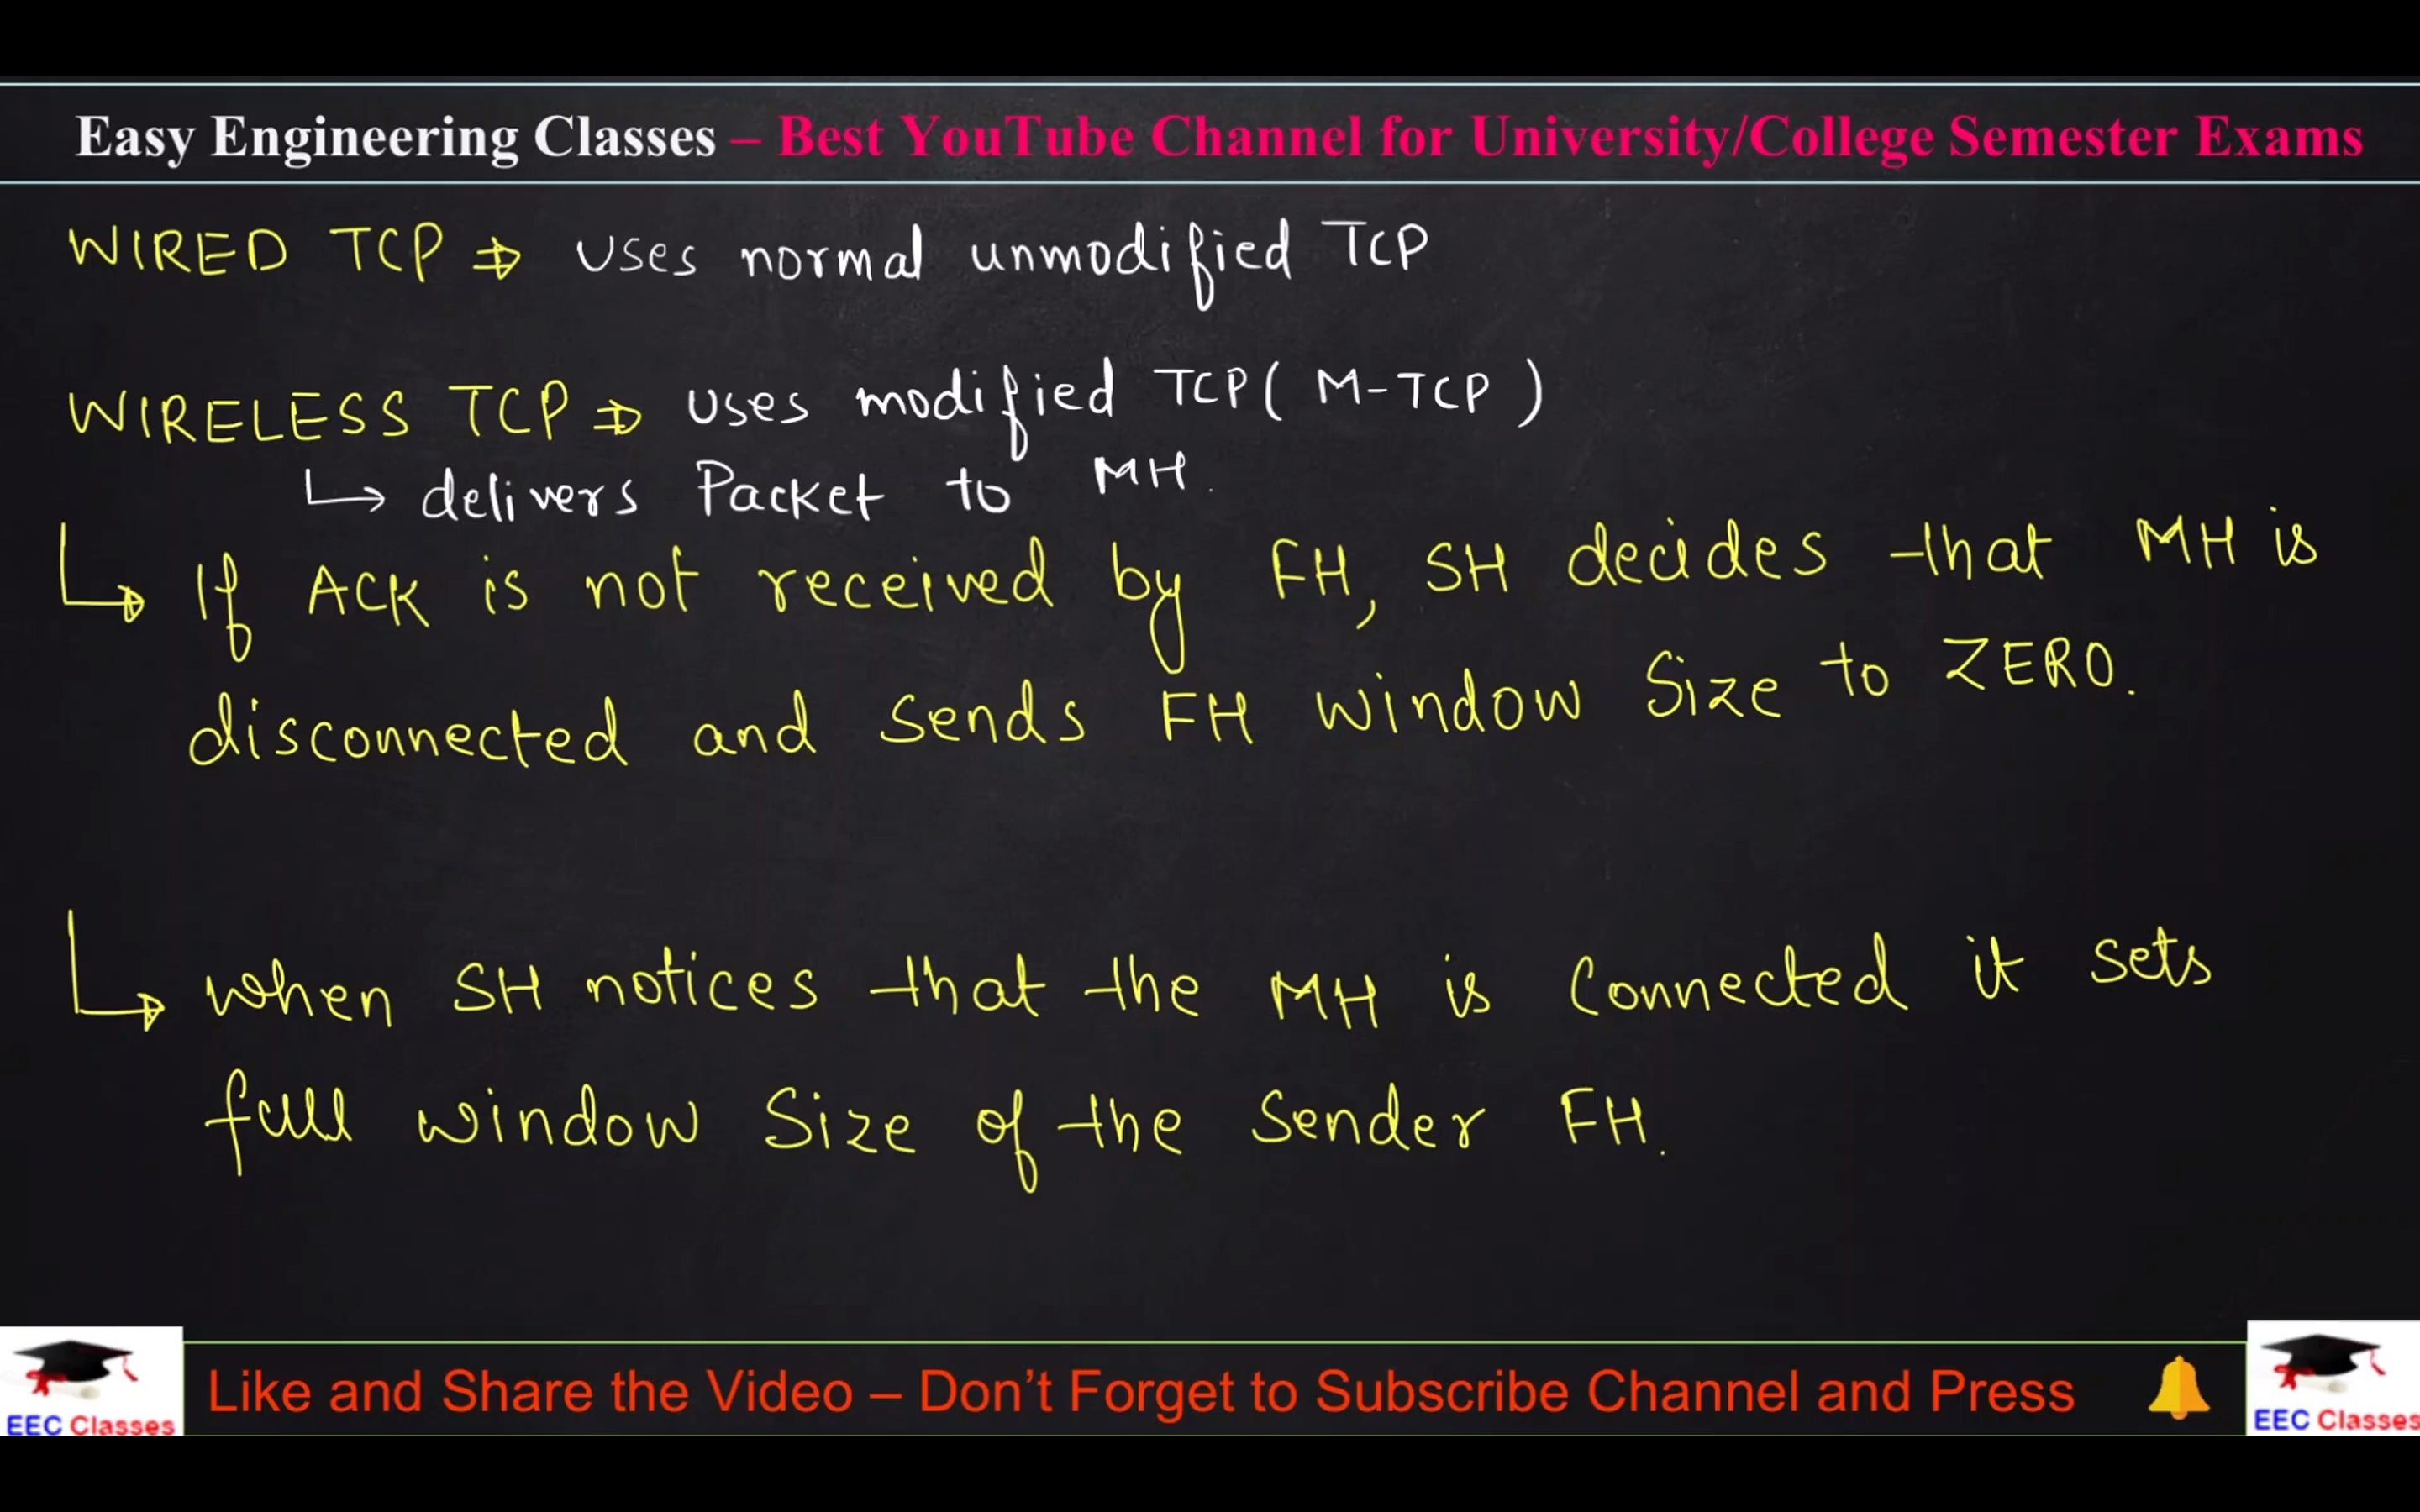 Easy Engineering Classes – Best YouTube Channel for University/College Semester Exams
WIRED TCP ⇒ Uses normal unmodified TCP
WIRELESS TCP ⇒ Uses modified TCP ( M-TCP )
↳ delivers Packet to MH.
↳ If ACK is not received by FH, SH decides that MH is
disconnected and sends FH window size to ZERO.
↳ when SH notices that the MH is connected it sets
full window size of the sender FH.
EEC Classes
Like and Share the Video – Don’t Forget to Subscribe Channel and Press
EEC Classes